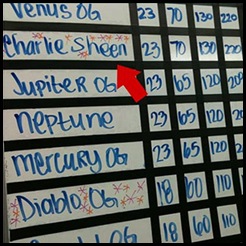 Venus OG 23 70 130 220
Charlie Sheen 23 70 130 220
Jupiter OG 23 65 120
Neptune 23 65 120
Mercury OG 23 65 120
Diablo OG 18 60 110
18 60 110